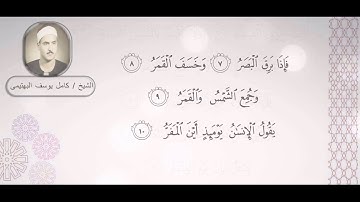 فَإِذَا بَرِقَ ٱلْبَصَرُ ٧ وَخَسَفَ ٱلْقَمَرُ ٨
وَجُمِعَ ٱلشَّمْسُ وَٱلْقَمَرُ ٩
يَقُولُ ٱلْإِنسَٰنُ يَوْمَئِذٍ أَيْنَ ٱلْمَفَرُّ ١٠
الشيخ / كامل يوسف البهتيمى